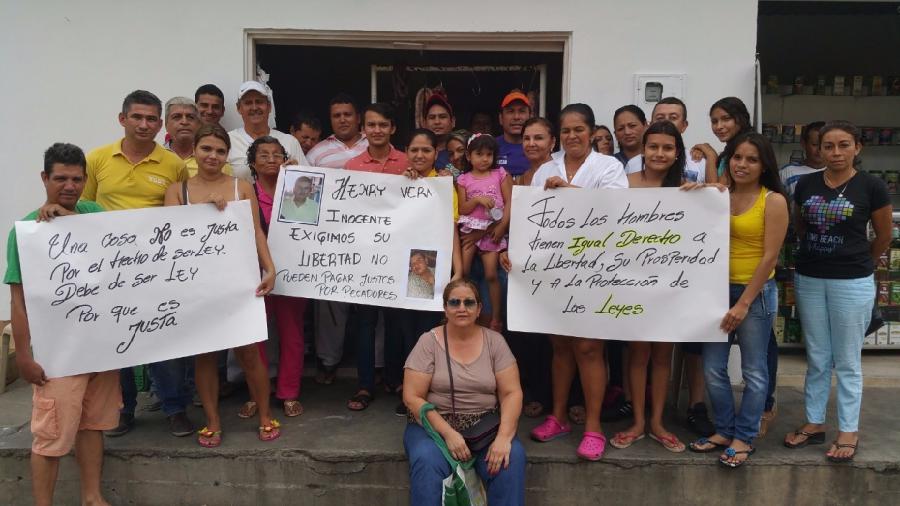 Una cosa No es justa
Por el Hecho de ser Ley.
Debe de ser LEY
Por que es
justa
HENRY VERA
INOCENTE
EXIGIMOS SU
LIBERTAD NO
PUEDEN PAGAR JUSTOS
POR PECADORES
Todos Los Hombres
tienen Igual Derecho a
La Libertad, Su Prosperidad
y A La Protección de
Las Leyes
LONG BEACH